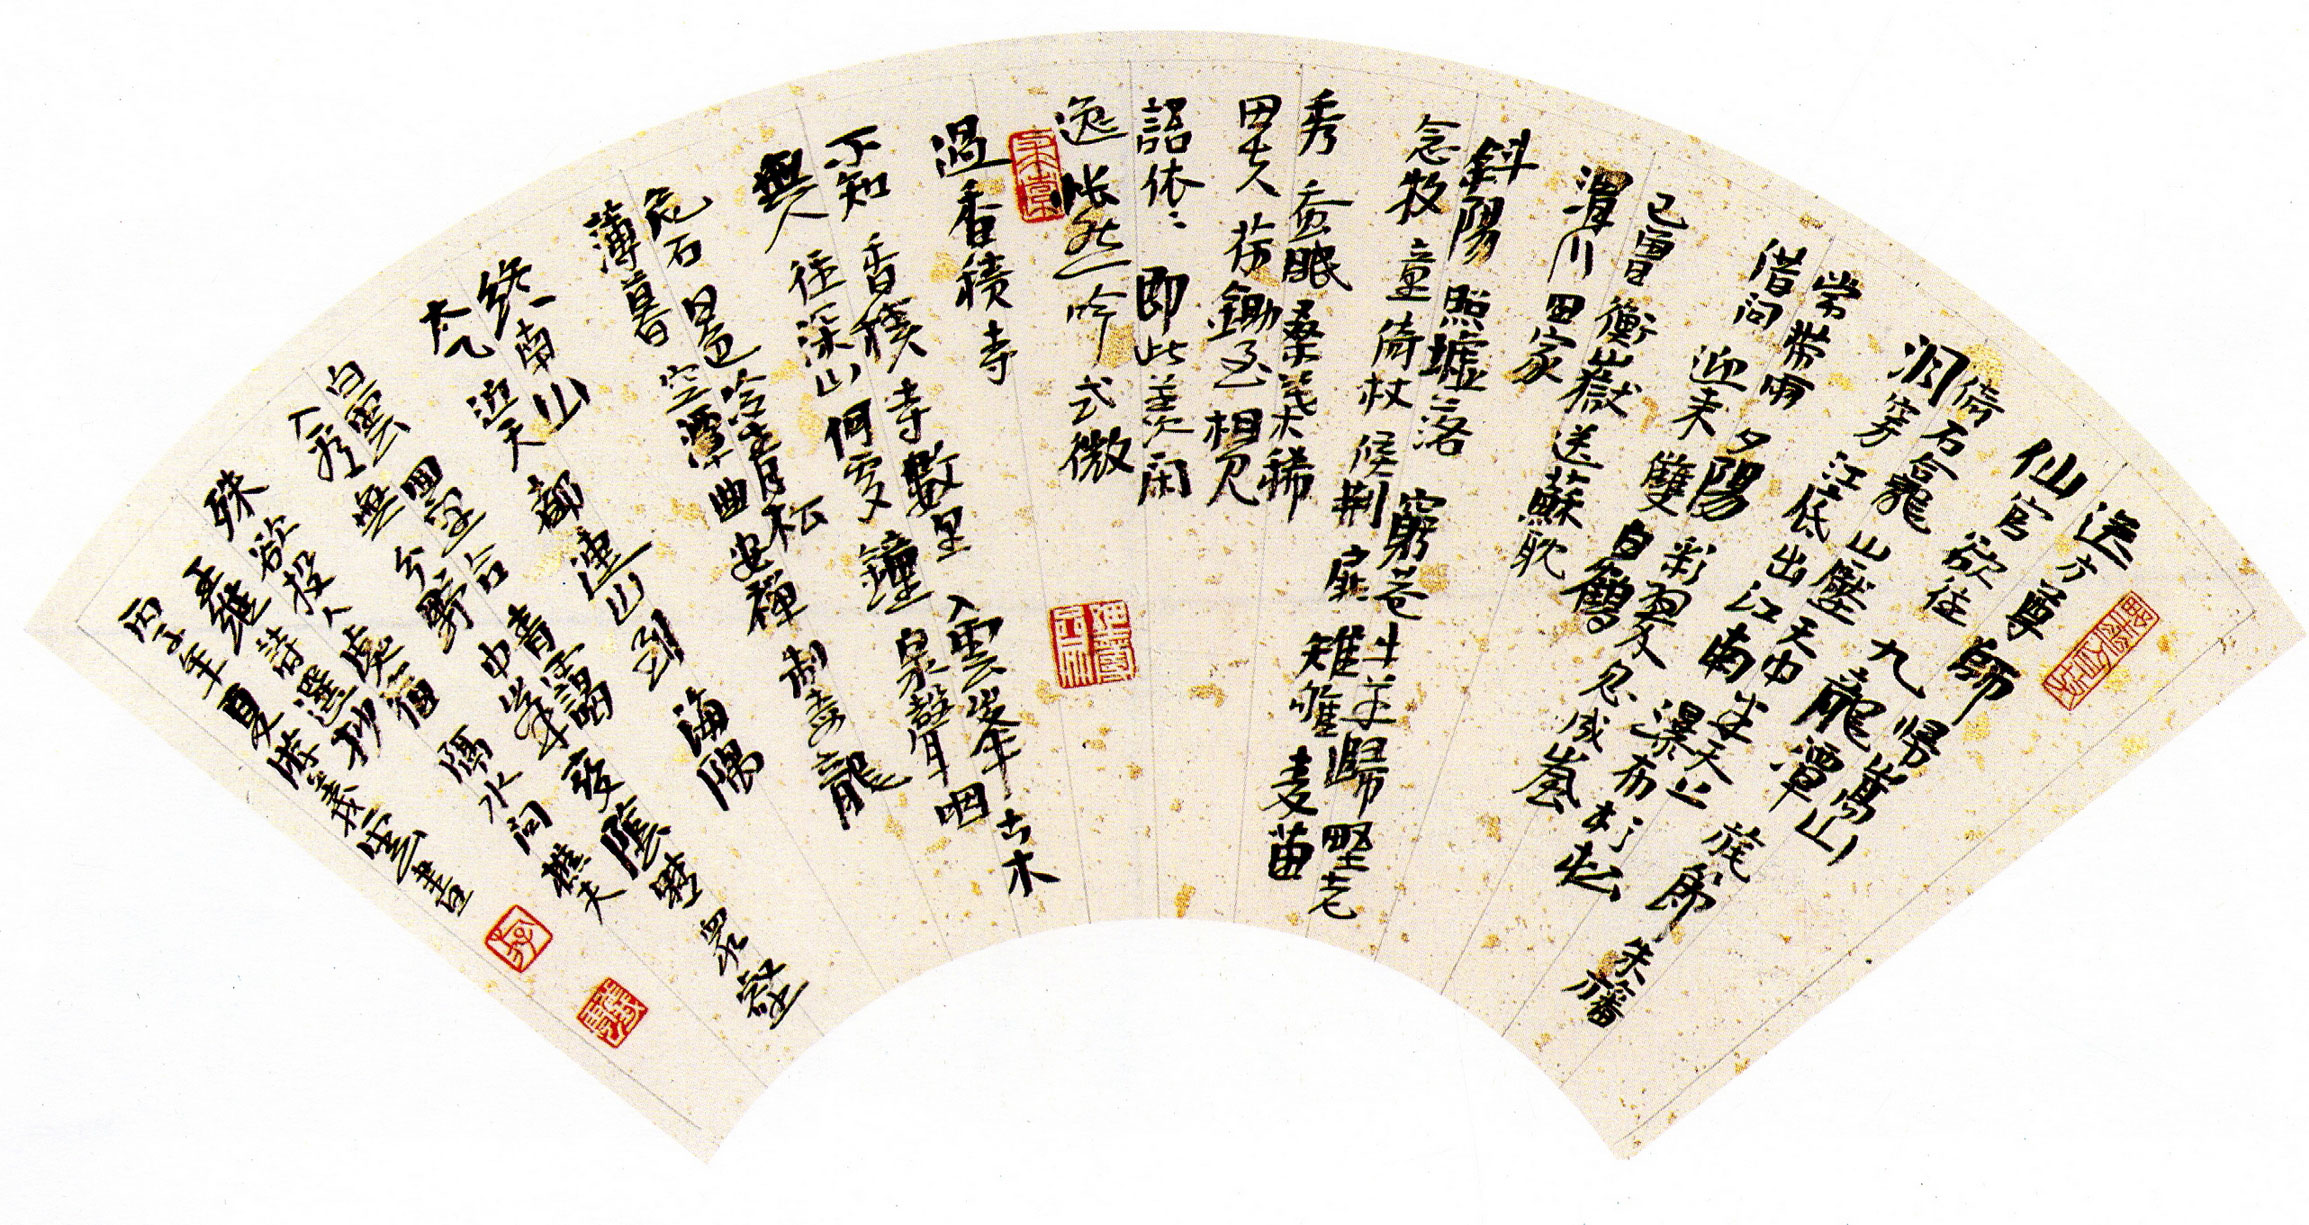 送方尊師帰嵩山
仙官欲往九龍潭旄節朱旛
倚石龕山壓天中半天上
洞穿江底出江南瀑布杉松
常帶雨夕陽彩翠忽成嵐
借問迎来雙白鶴
已曾衡嶽送蘇耽
渭川田家
斜陽照墟落窮巷牛羊歸野老
念牧童倚杖候荆扉雉雊麦苗
秀蚕眠桑葉稀
田夫荷鋤至相見
語依々即此羡闲
逸悵然吟式微
過香積寺
不知香積寺數里入雲峯古木
無人徑深山何處鐘泉聲咽
危石日色冷青松
薄暮空潭曲安禪制毒龍
終南山
太乙近天都連山到海隅
白雲囬望合青靄
入看無分野中峯變陰晴衆壑
殊欲投人處宿隔水问樵夫
王維詩選抄
丙子年夏